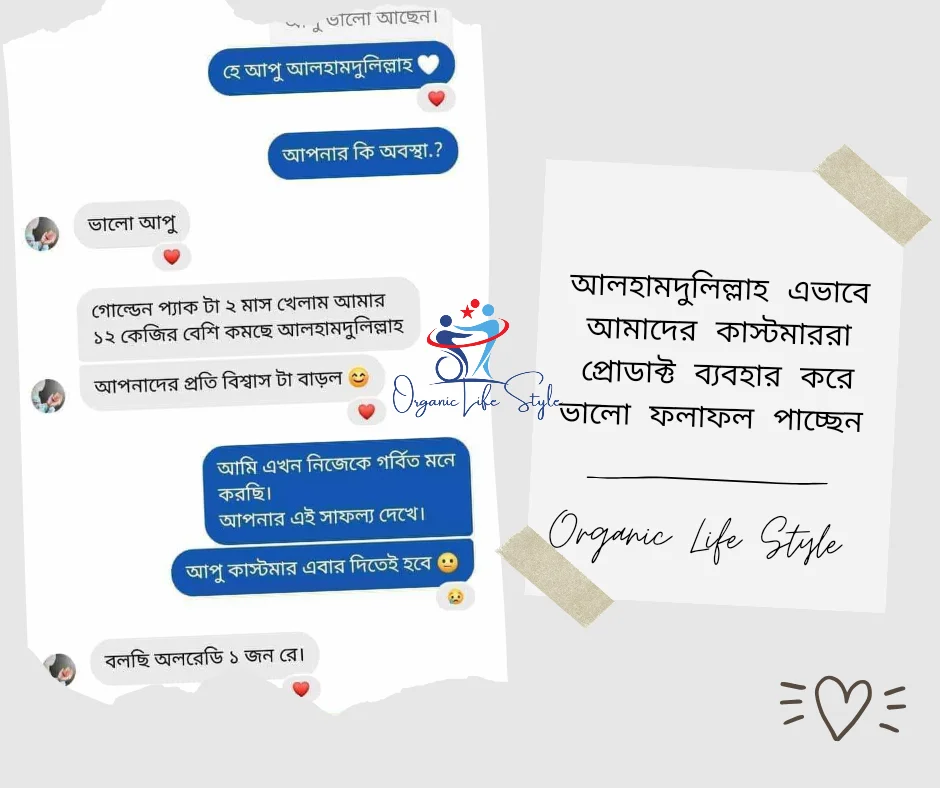 আপু ভালো আছেন।
হে আপু আলহামদুলিল্লাহ 🤍
আপনার কি অবস্থা.?
ভালো আপু
গোল্ডেন প্যাক টা ২ মাস খেলাম আমার
১২ কেজির বেশি কমছে আলহামদুলিল্লাহ
আপনাদের প্রতি বিশ্বাস টা বাড়ল 😊
আমি এখন নিজেকে গর্বিত মনে
করছি।
আপনার এই সাফল্য দেখে।
আপু কাস্টমার এবার দিতেই হবে 😐
বলছি অলরেডি ১ জন রে।
Organic Life Style
আলহামদুলিল্লাহ এভাবে
আমাদের কাস্টমাররা
প্রোডাক্ট ব্যবহার করে
ভালো ফলাফল পাচ্ছেন
Organic Life Style